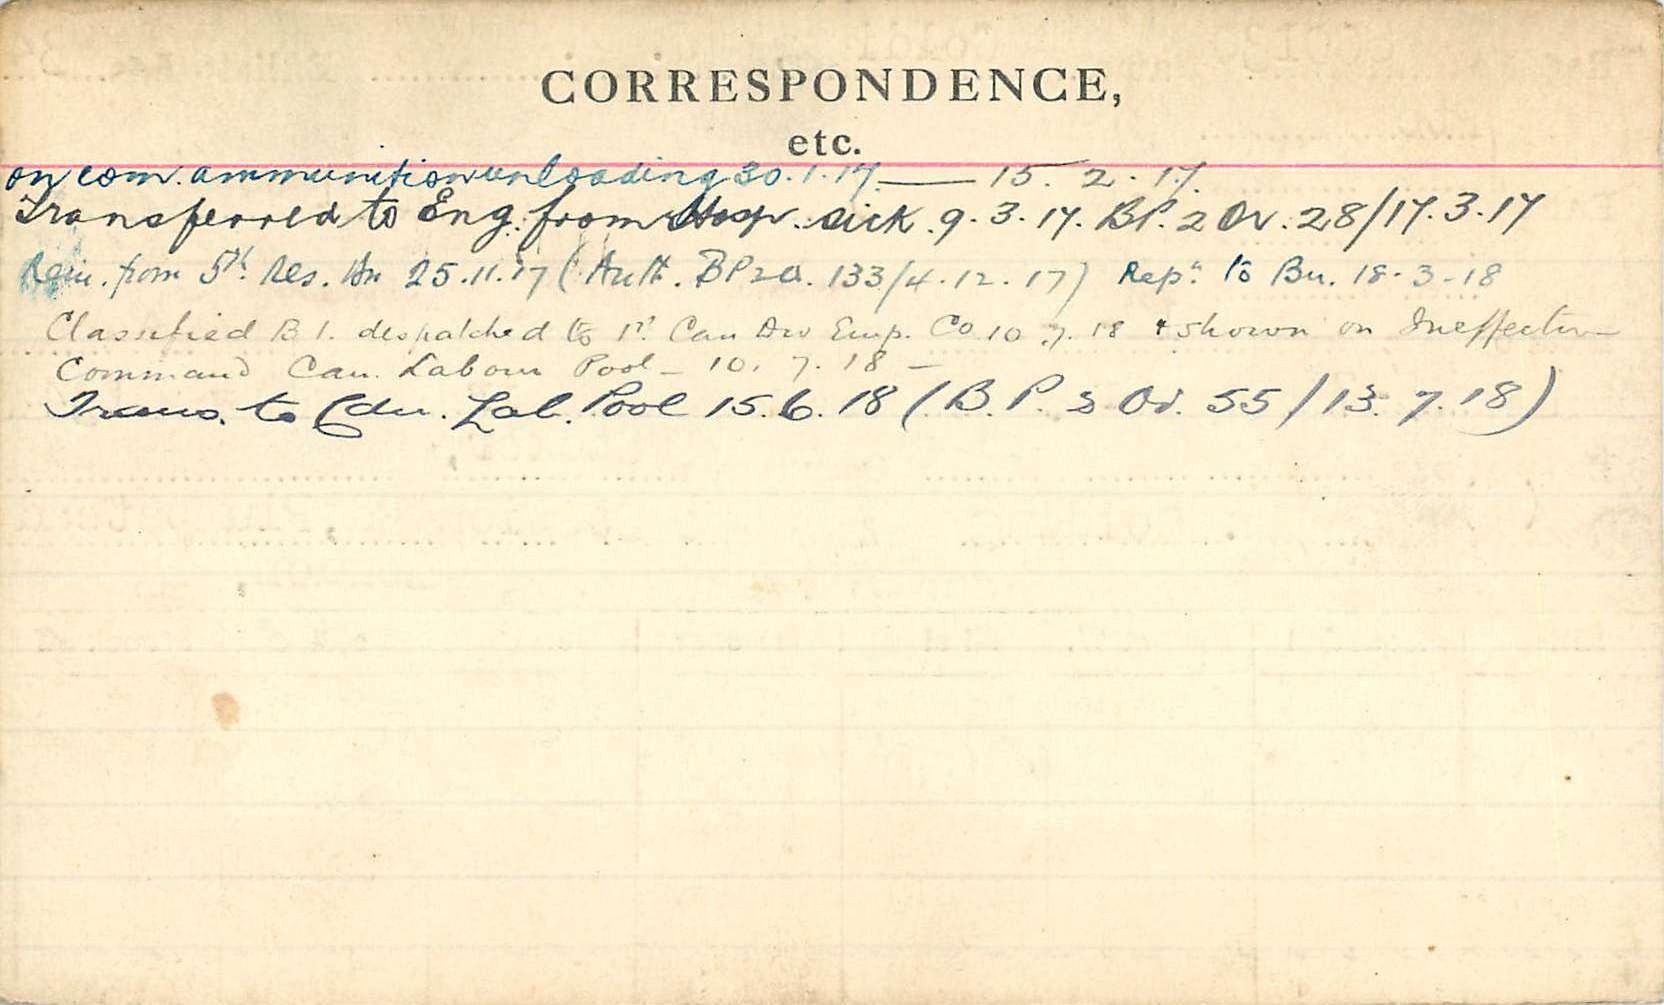 CORRESPONDENCE,
etc.
on com. ammunition unloading 30.1.17. — 15.2.17.
Transferred to Eng. from Hosp. sick. 9.3.17. BP. 2 Or. 28/17.3.17
from 5th. Res. Bn 25.11.17 (Auth. BP2O. 133/4.12.17) Rep. to Bn. 18-3-18
Classified B 1. despatched to 1st Can Div Emp. Co 10.7.18 & shown on Ineffective
Command Can. Labour Pool - 10.7.18 -
Trans. to Cdn. Lab. Pool 15.6.18 (B.P. 2 Or. 55/13.7.18)